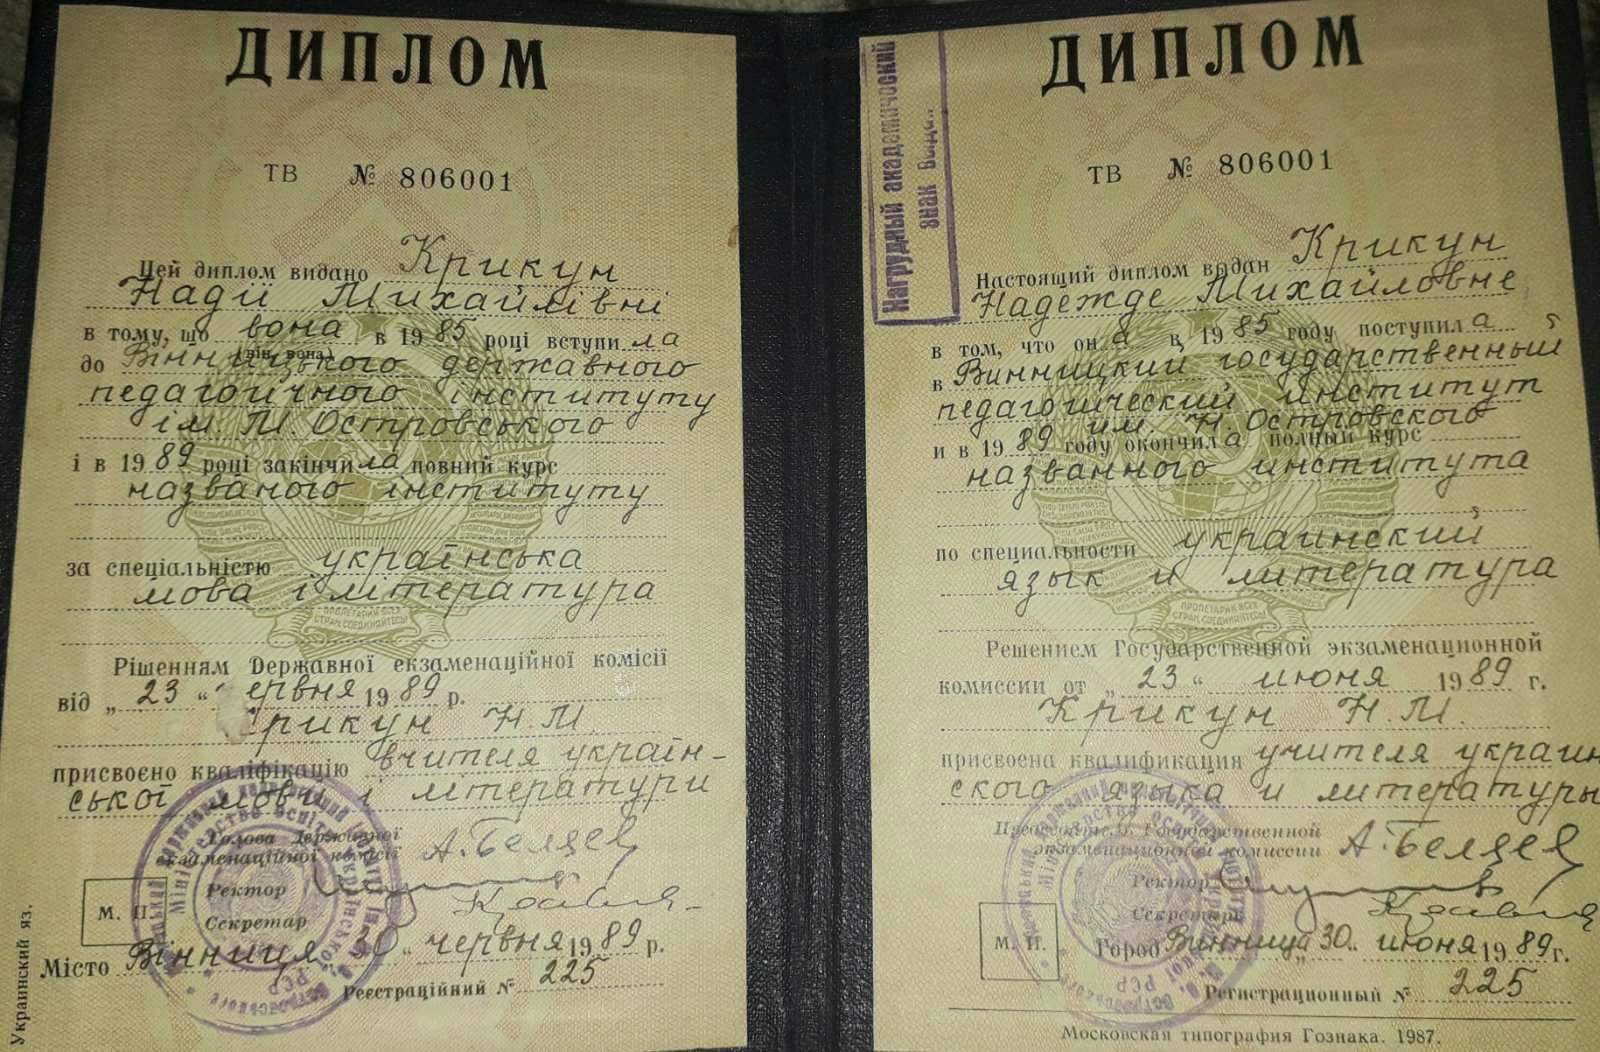 ДИПЛОМ
ТВ № 806001
Цей диплом видано Крикун
Надії Михайлівні
в тому, що вона в 1985 році вступила
(він, вона)
до Вінницького державного
педагогічного інституту
ім. М. Островського
і в 1989 році закінчила повний курс
названого інституту
за спеціальністю українська
мова і література
ПРОЛЕТАРИИ ВСЕХ
СТРАН, СОЕДИНЯЙТЕСЬ!
Рішенням Державної екзаменаційної комісії
від „23“ ервня 1989 р.
рикун Н.М.
присвоєно кваліфікацію вчителя україн-
ської мови і літератури
Голова Державної
екзаменаційної комісії А. Беляев
Ректор
Секретар
М. П.
Місто Вінниця 0 “ червня 1989 р.
Реєстраційний № 225
Украинский яз.
Нагрудный академический
знак выда..
ДИПЛОМ
ТВ № 806001
Настоящий диплом выдан Крикун
Надежде Михайловне
в том, что она в 1985 году поступила
в Винницкий государственный
педагогический институт
им. Н. Островского
и в 1989 году окончила полный курс
названного института
по специальности украинский
язык и литература
ПРОЛЕТАРИИ ВСЕХ
СТРАН, СОЕДИНЯЙТЕСЬ!
Решением Государственной экзаменационной
комиссии от „23“ июня 1989 г.
Крикун Н.М.
присвоена квалификация учителя украин
ского языка и литературы
Председатель Государственной
экзаменационной комиссии А. Беляев
Ректор
Секретарь
М. П.
Город Винница „30“ июня 1989 г.
Регистрационный № 225
Московская типография Гознака. 1987.